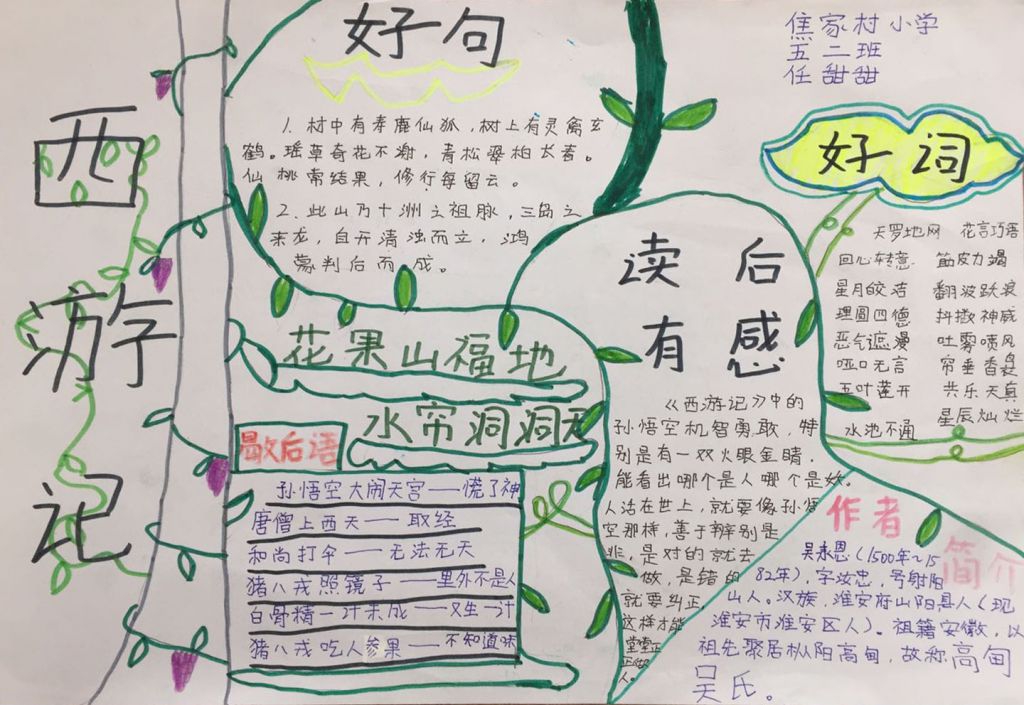 西游记
好句
1. 村中有寿鹿仙狐,树上有灵禽玄
鹤。瑶草奇花不谢,青松翠柏长春。
仙桃常结果,修行每留云。
2. 此山乃十洲之祖脉,三岛之
来龙,自开清浊而立,鸿
蒙判后而成。
花果山福地
水帘洞洞天
歇后语
孙悟空大闹天宫——慌了神
唐僧上西天——取经
和尚打伞——无法无天
猪八戒照镜子——里外不是人
白骨精一计未成——又生一计
猪八戒吃人参果——不知道味
读后
有感
《西游记》中的
孙悟空机智勇敢,特
别是有一双火眼金睛。
能看出哪个是人哪个是妖。
人活在世上,就要像孙悟
空那样,善于辨别是
非,是对的就去
做,是错的
就要纠正,
这样才能
堂堂正
正做
人。
焦家村小学
五二班
任甜甜
好词
天罗地网 花言巧语
回心转意 筋皮力竭
星月皎洁 翻波跃浪
理圆四德 抖擞神威
恶气遮漫 吐雾喷风
哑口无言 帘垂香袅
五叶莲开 共乐天真
水池不通 星辰灿烂
作者
简介
吴承恩(1500年~15
82年),字汝忠,号射阳
山人。汉族,淮安府山阳县人(现
淮安市淮安区人)。祖籍安徽,以
祖先聚居枞阳高甸,故称高甸
吴氏。